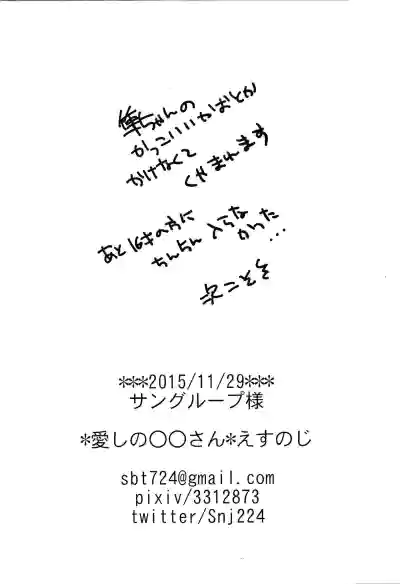 隼ちゃんの
かっこいいかおとか
かけなくて
くやまれます
あと16才の方に
ちんちん入らな
かった…
次こそを
***2015/11/29***
サングループ様
*愛しの〇〇さん*えすのじ
sbt724@gmail.com
pixiv/3312873
twitter/Snj224